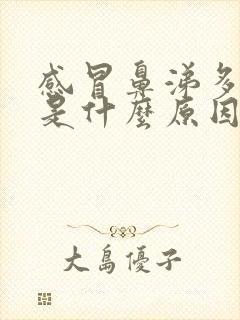 感冒鼻涕多
是什麼原因
大島優子